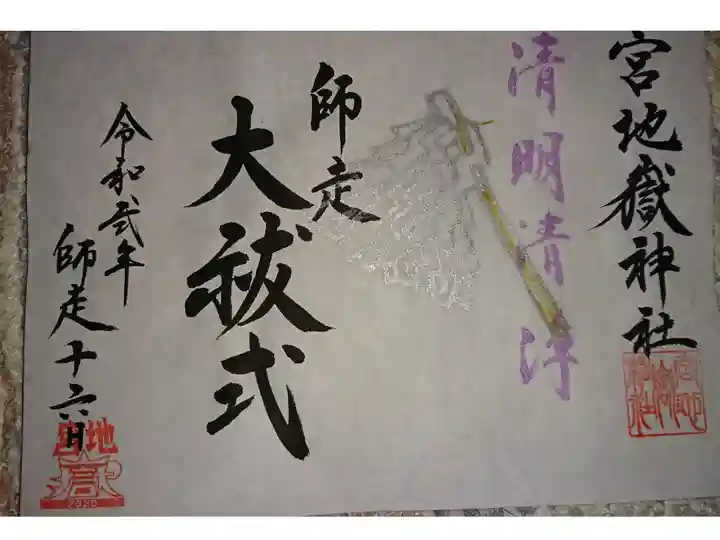 宮地嶽神社
清明清浄
師走
大祓式
令和弐年
師走十六日
宮地
嶽
2020